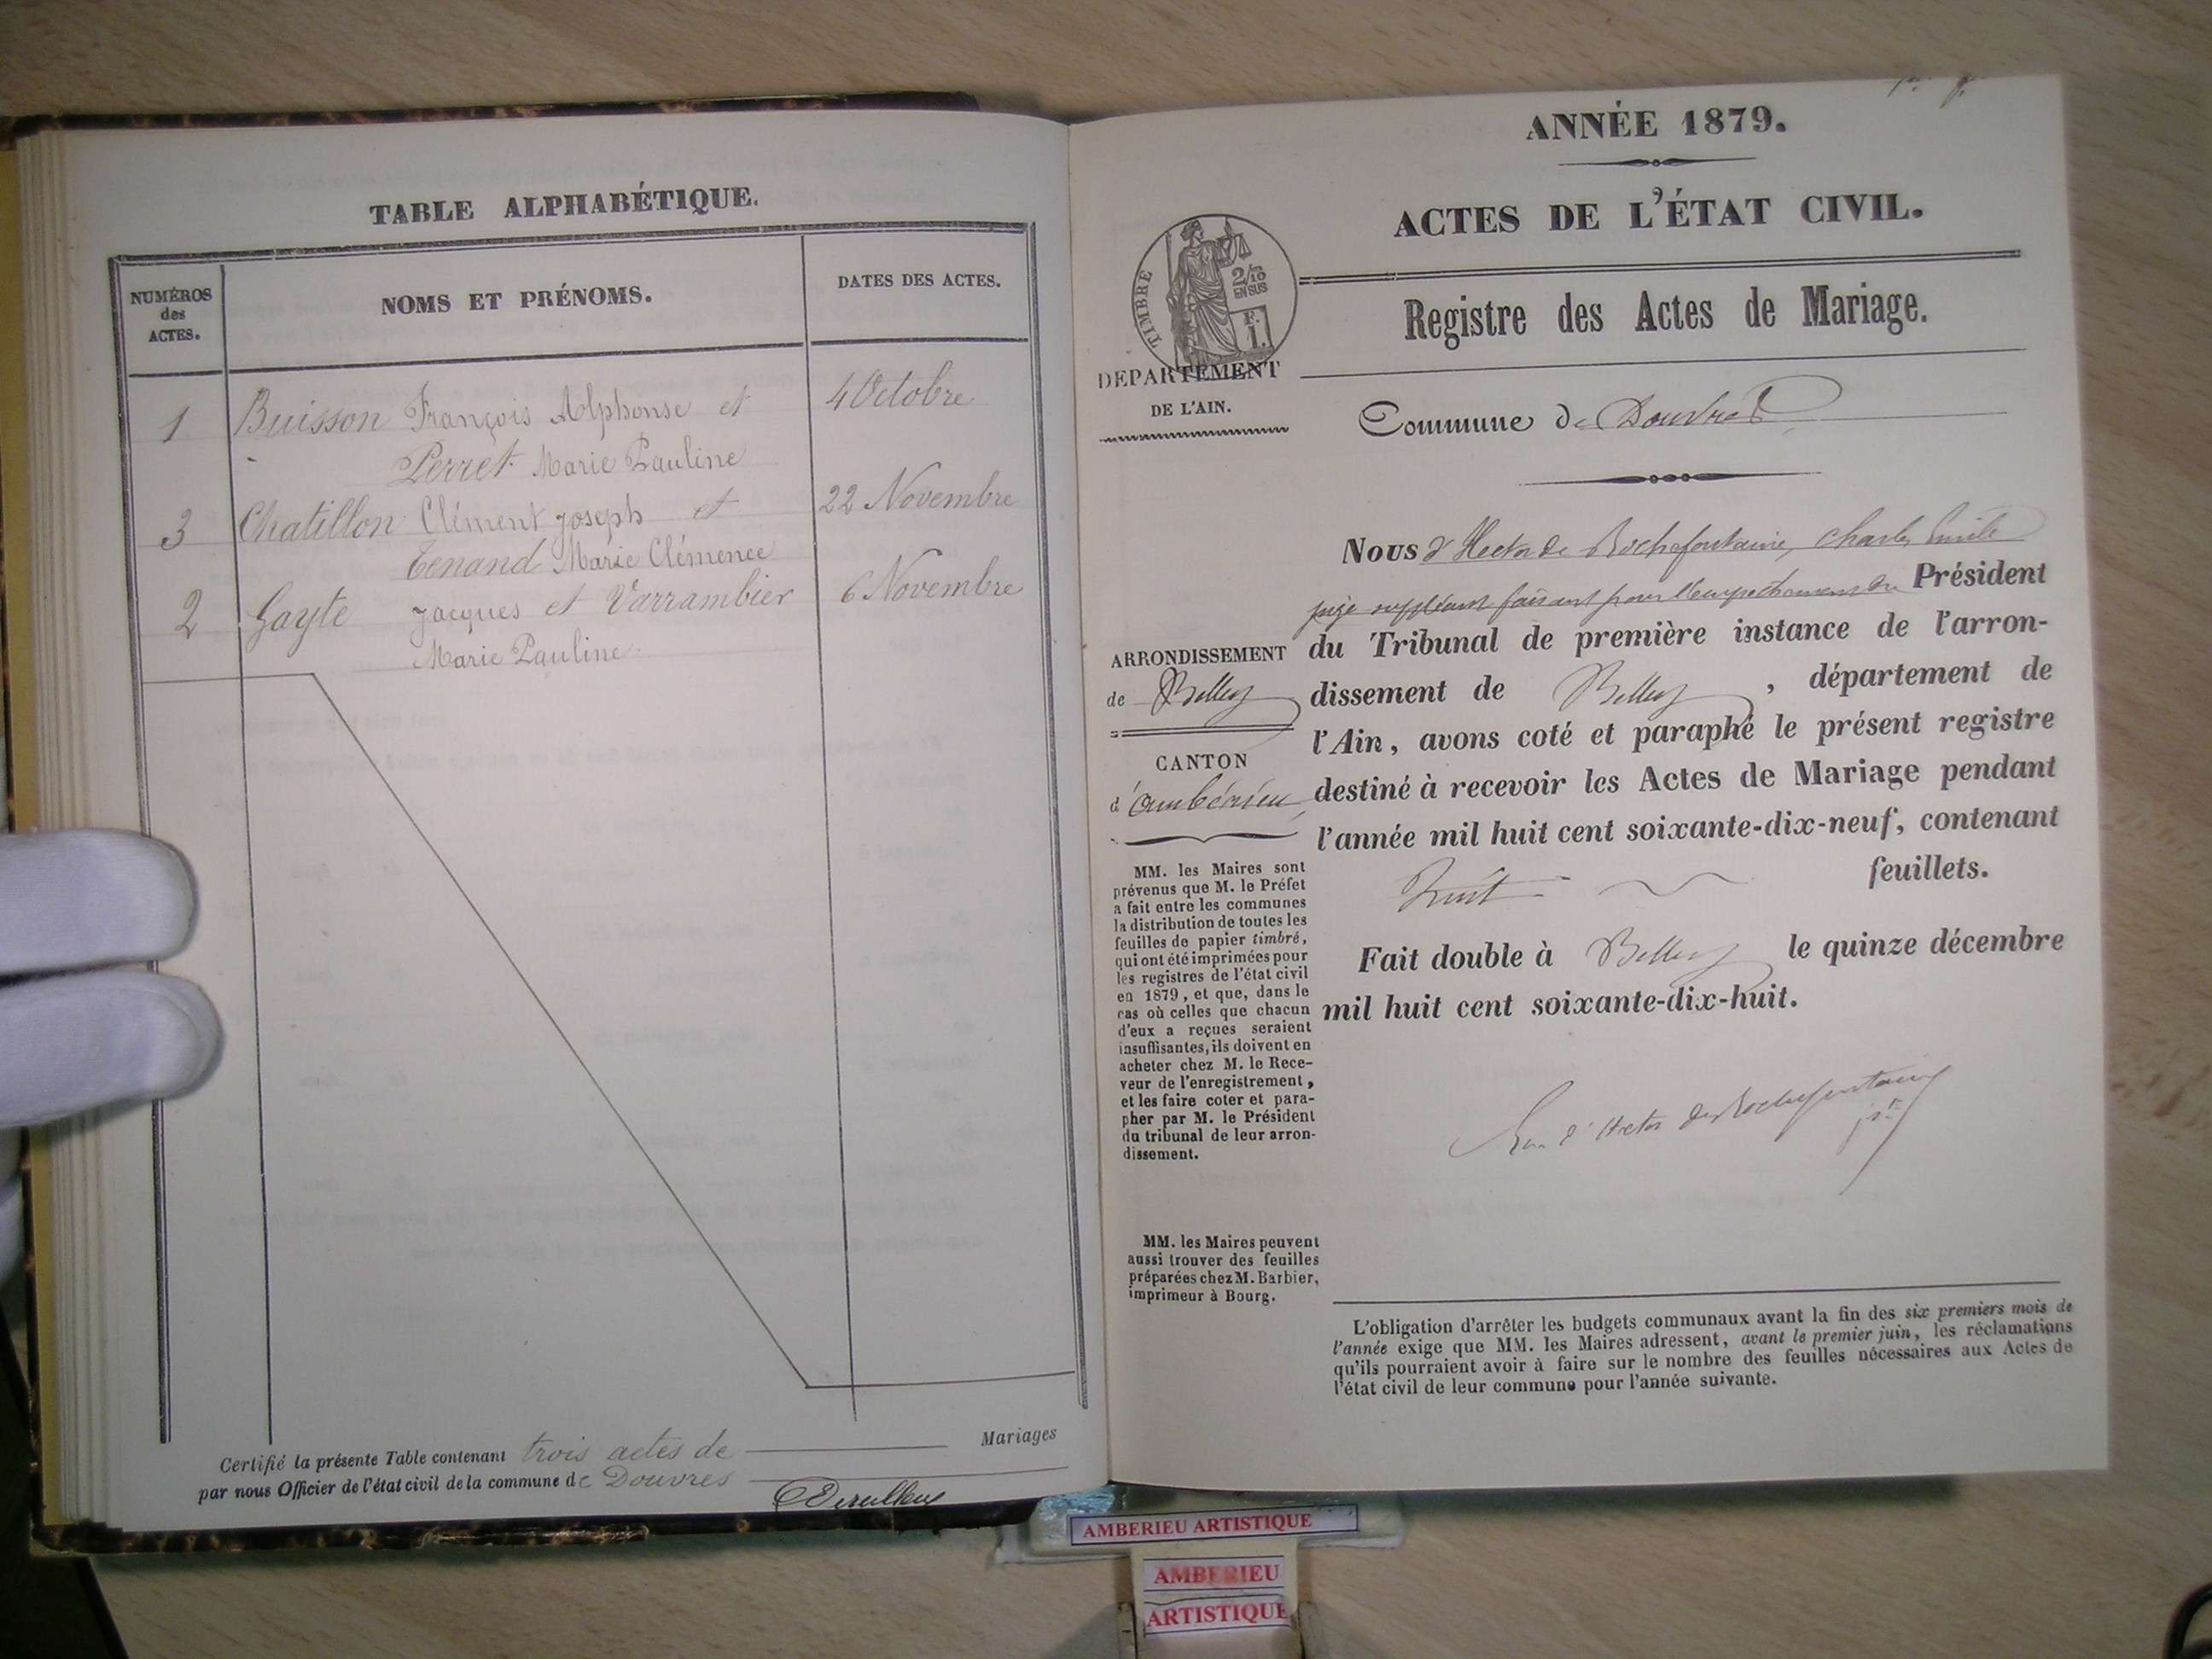 TABLE ALPHABÉTIQUE.
NUMÉROS
des
ACTES.
NOMS ET PRÉNOMS.
DATES DES ACTES.
1 Buisson François Alphonse et 4 Octobre
Perret Marie Pauline
3 Chatillon Clément Joseph et 22 Novembre
Tenand Marie Clémence
2 Gayte Jacques et Varrambier 6 Novembre
Marie Pauline
Certifié la présente Table contenant trois actes de Mariages
par nous Officier de l'état civil de la commune de Douvres
ANNÉE 1879.
ACTES DE L'ÉTAT CIVIL.
TIMBRE
2/10
EN SUS
F.
1.
Registre des Actes de Mariage.
DEPARTEMENT
DE L'AIN.
Commune de Douvres
Nous d'Hector de Rochefontaine, Charles Emile
juge suppléant faisant pour l'empechement du Président
du Tribunal de première instance de l'arron-
dissement de Belley, département de
l'Ain, avons coté et paraphé le présent registre
destiné à recevoir les Actes de Mariage pendant
l'année mil huit cent soixante-dix-neuf, contenant
huit feuillets.
Fait double à Belley le quinze décembre
mil huit cent soixante-dix-huit.
d'Hector de Rochefontaine
ARRONDISSEMENT
de Belley
CANTON
d'Ambérieu
MM. les Maires sont
prévenus que M. le Préfet
a fait entre les communes
la distribution de toutes les
feuilles de papier timbré,
qui ont été imprimées pour
les registres de l'état civil
en 1879, et que, dans le
cas où celles que chacun
d'eux a reçues seraient
insuffisantes, ils doivent en
acheter chez M. le Rece-
veur de l'enregistrement,
et les faire coter et para-
pher par M. le Président
du tribunal de leur arron-
dissement.
MM. les Maires peuvent
aussi trouver des feuilles
préparées chez M. Barbier,
imprimeur à Bourg.
L'obligation d'arrêter les budgets communaux avant la fin des six premiers mois de
l'année exige que MM. les Maires adressent, avant le premier juin, les réclamations
qu'ils pourraient avoir à faire sur le nombre des feuilles nécessaires aux Actes de
l'état civil de leur commune pour l'année suivante.
AMBERIEU ARTISTIQUE
AMBERIEU
ARTISTIQUE